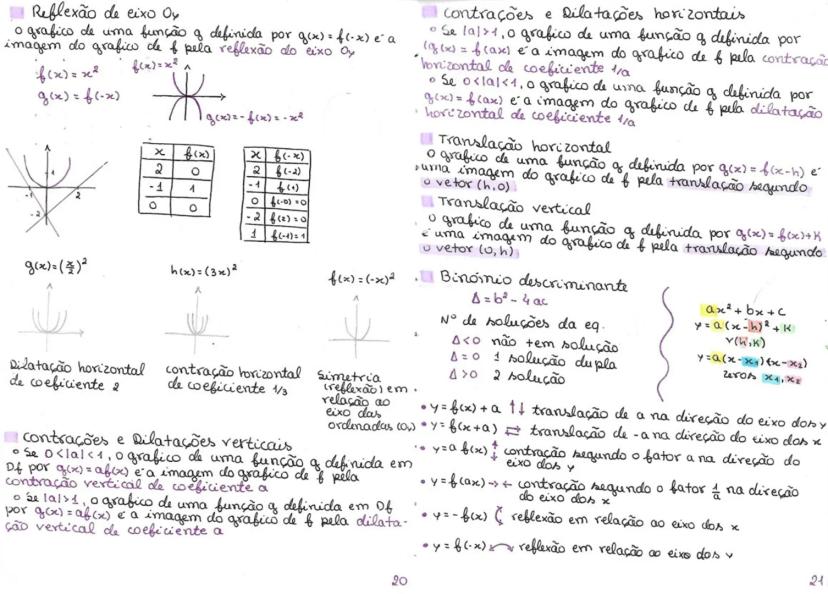 Reflexão de eixo Oy
O grafico de uma função g definida por g(x) = f(-x) é a
imagem do grafico de f pela reflexão do eixo Oy
f(x) = x²
g(x) = f(-x)
f(x) = x²
g(x) = -f(x) = -x²
-1 1 2
-2
x f(x)
2 0
-1 1
0 0
x f(-x)
2 f(-2)
-1 f(1)
0 f(-0) = 0
-2 f(2) = 0
1 f(-1) = 1
g(x) = (x/2)²
h(x) = (3x)²
f(x) = (-x)²
Dilatação horizontal
de coeficiente 2
contração horizontal
de coeficiente 1/3
Simetria
(reflexão) em
relação ao
eixo das
ordenadas (Oy)
contrações e Dilatações verticais
° Se 0<|a|<1, o grafico de uma função g definida em
Df por g(x) = af(x) é a imagem do grafico de f pela
contração vertical de coeficiente a
° Se |a|>1, o grafico de uma função g definida em Df
por g(x) = af(x) é a imagem do grafico de f pela dilata-
ção vertical de coeficiente a
20
contrações e Dilatações horizontais
° Se |a|>1, o grafico de uma função g definida por
(g(x) = f(ax) é a imagem do grafico de f pela contração
horizontal de coeficiente 1/a
° Se 0<|a|<1, o grafico de uma função g definida por
g(x) = f(ax) é a imagem do grafico de f pela dilatação
horizontal de coeficiente 1/a
Translação horizontal
O grafico de uma função g definida por g(x) = f(x-h) é
uma imagem do grafico de f pela translação segundo
o vetor (h,0)
Translação vertical
O grafico de uma função g definida por g(x) = f(x)+K
é uma imagem do grafico de f pela translação segundo
o vetor (0,h)
Binómio descriminante
Δ = b² - 4ac
Nº de soluções da eq.
Δ<0 não tem solução
Δ=0 1 solução dupla
Δ>0 2 solução
ax² + bx + c
y = a(x-h)² + K
V(h,K)
y = a(x-x₁)(x-x₂)
zeros x₁, x₂
• y = f(x) + a ↑↓ translação de a na direção do eixo dos y
• y = f(x+a) ⇄ translação de -a na direção do eixo dos x
• y = a f(x) ↕ contração segundo o fator a na direção do
eixo dos y
• y = f(ax) →← contração segundo o fator 1/a na direção
do eixo dos x
• y = -f(x) reflexão em relação ao eixo dos x
• y = f(-x) reflexão em relação ao eixo dos y
21